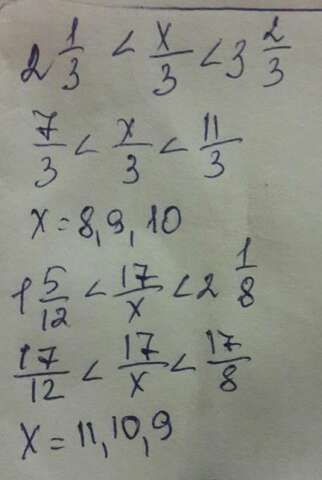 2 1/3 < x/3 < 3 2/3
7/3 < x/3 < 11/3
x = 8, 9, 10
1 5/12 < 17/x < 2 1/8
17/12 < 17/x < 17/8
x = 11, 10, 9